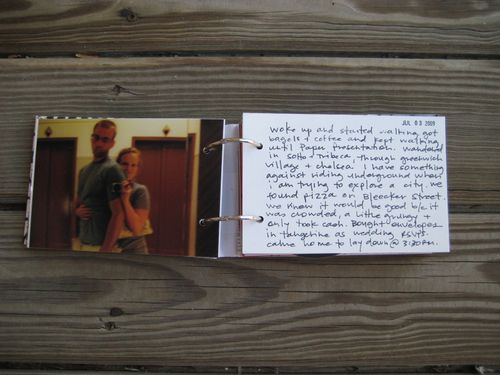 JUL 03 2009
woke up and started walking. got
bagels + coffee and kept walking
until Paper Presentation. wandered
in soho + Tribeca, through greenwich
village + chelsea. I have something
against riding underground when
i am trying to explore a city. we
found pizza on Bleecker Street.
we knew it would be good b/c it
was crowded, a little grungy +
only took cash. Bought envelopes
in tangerine as wedding RSVPS.
came home to lay down @ 3:30PM.